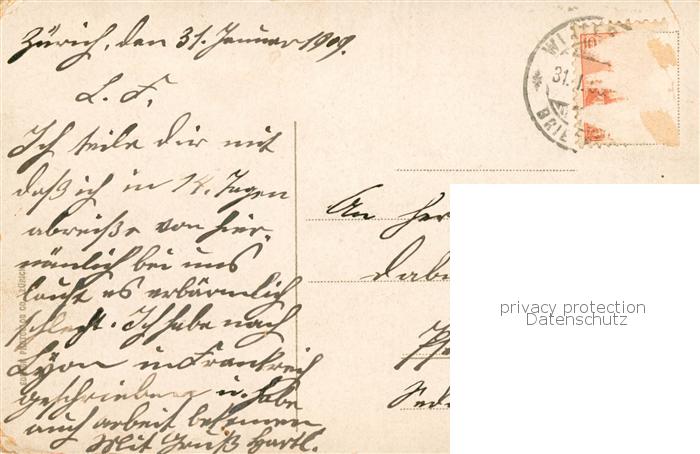 Zürich, den 31. Januar 1909.
L. F.
Ich teile dir mit
daß ich in 14. Tagen
abreiße von hier,
nämlich bei uns
lauft es erbärmlich
schlecht. Ich habe nach
Lyon in Frankreich
geschrieben u. habe
auch arbeit bekomen
Mit Gruß Hartl.
An Her
31. I.
BRIE
privacy protection
Datenschutz